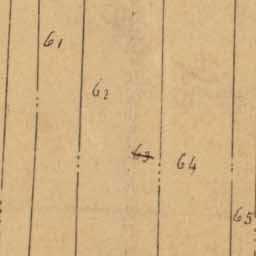 61
62
63
64
65